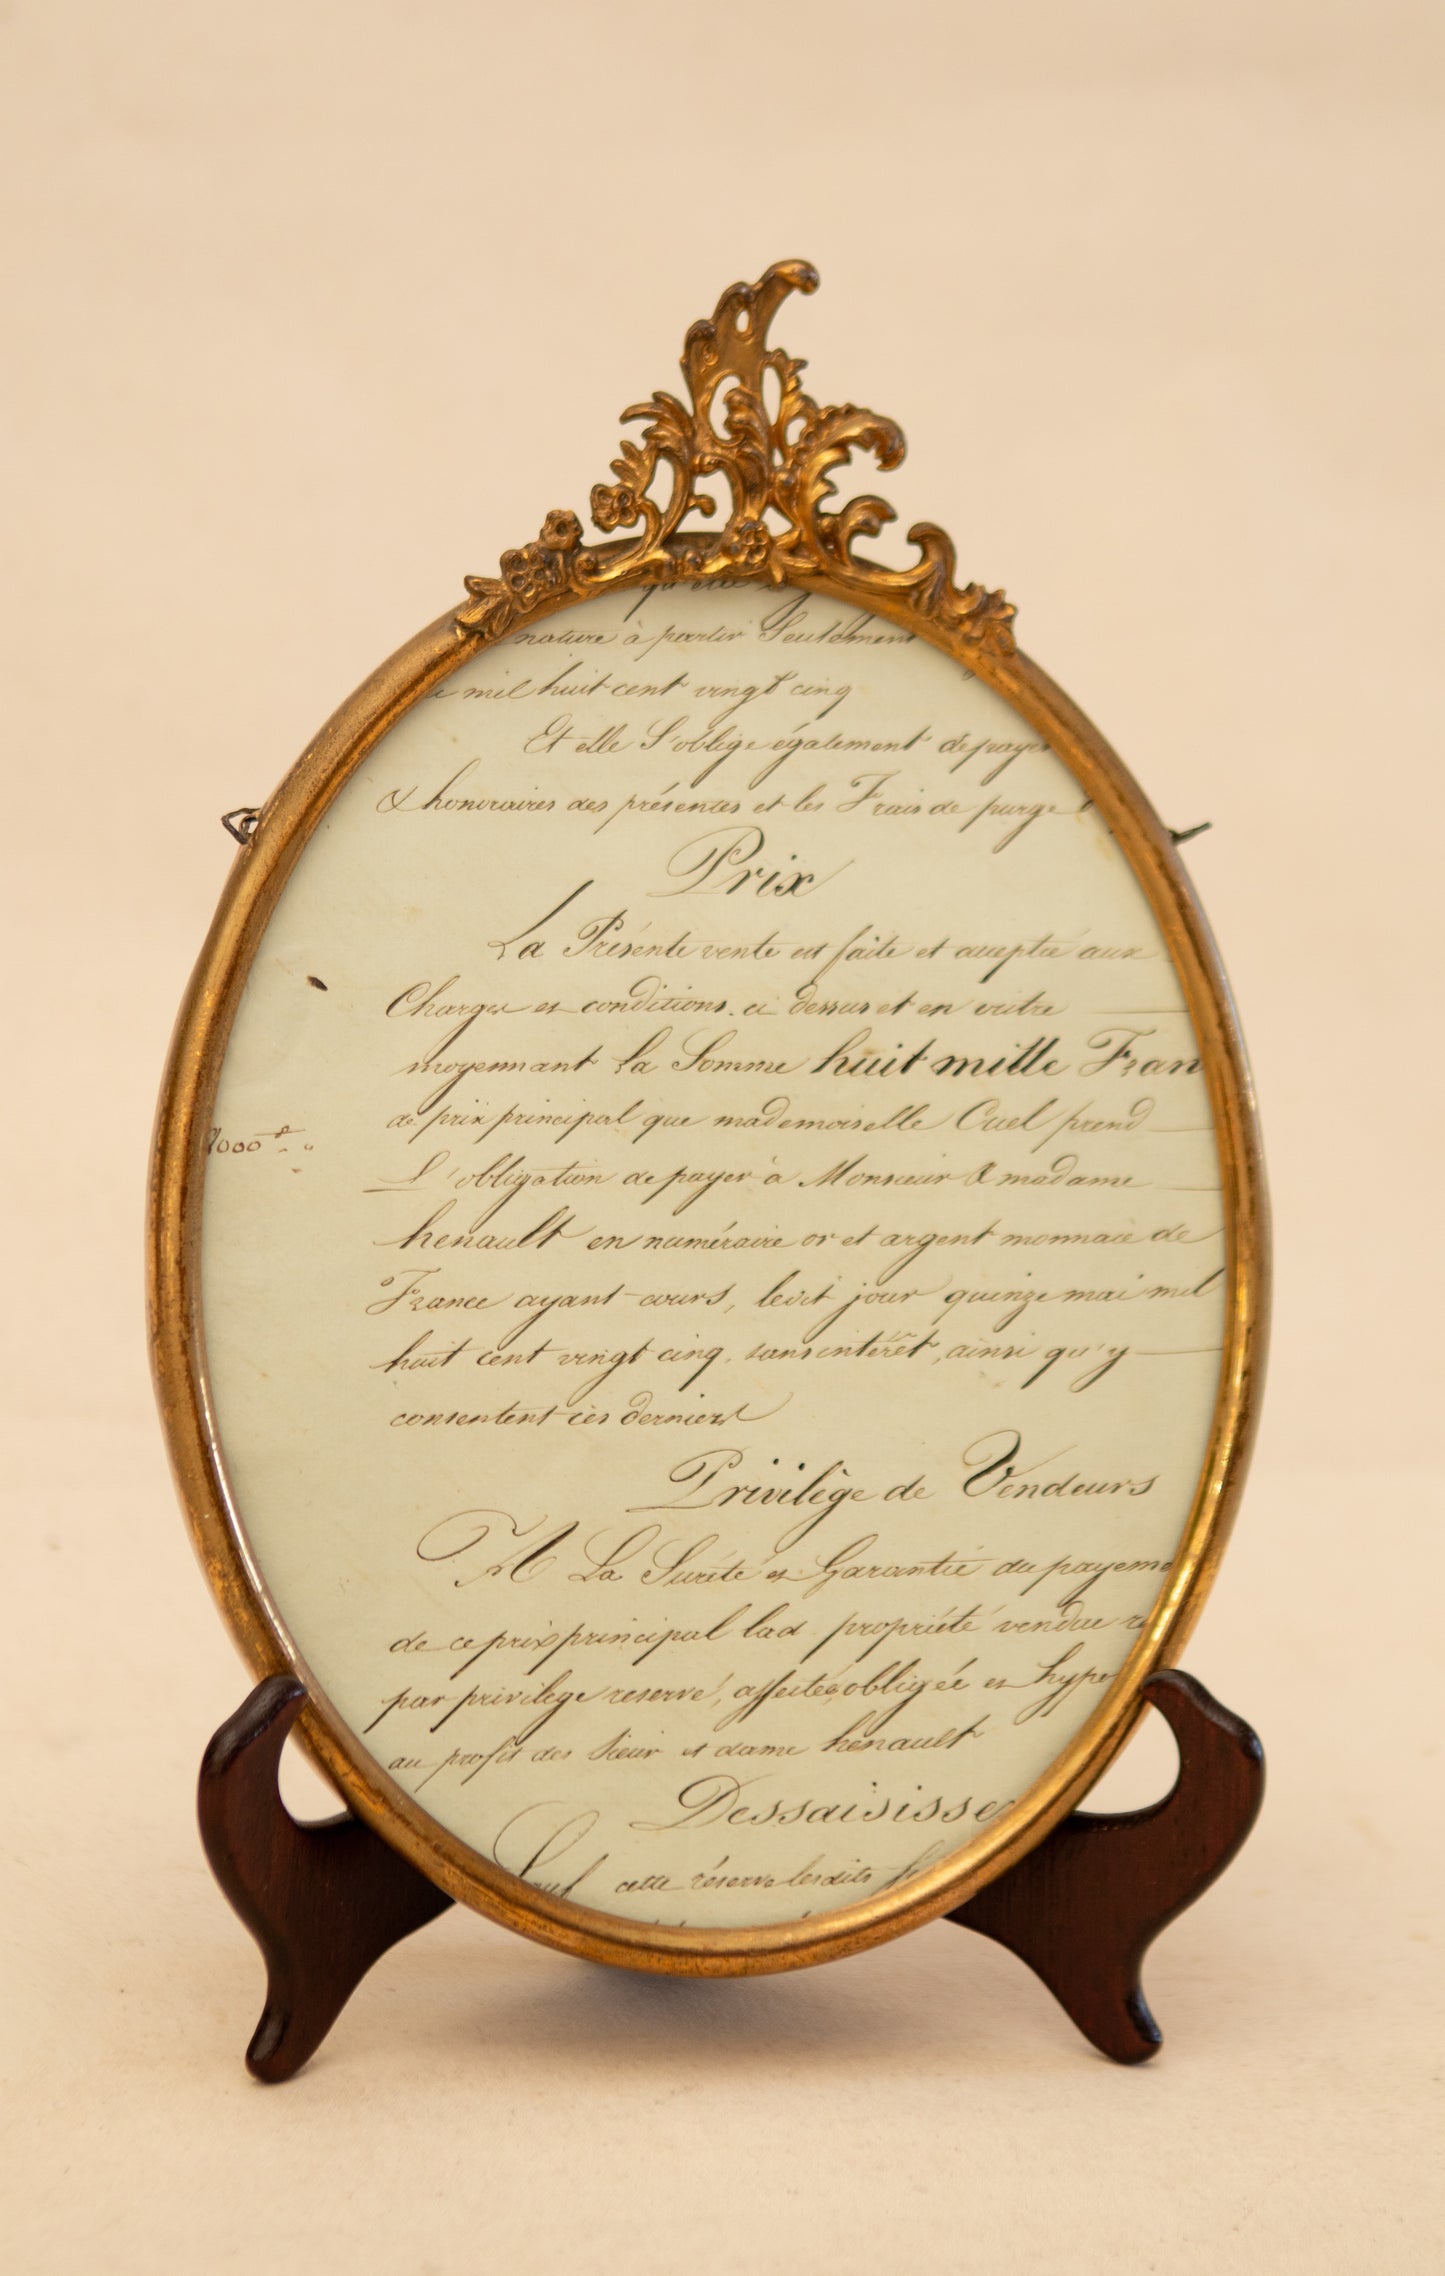 nature à partir Seulement
mil huit cent vingt cinq
Et elle S'oblige également de payer
& honoraires des présentes et les Frais de purge
Prix
La Présente vente est faite et acceptée aux
Charges et conditions ci dessus et en outre
moyennant La Somme huit mille Fran
de prix principal que mademoiselle Cuel prend
8000 f
L'obligation de payer à Monsieur & madame
henault en numéraire or et argent monnaie de
France ayant cours, ledit jour quinze mai mil
huit cent vingt cinq, sans intérêt, ainsi qu'y
consentent ces derniers
Privilège de Vendeurs
A La Sureté et Garantie du payeme
de ce prix principal lad. propriété vendue
par privilège reservé, affectée, obligée et hypo
au profit des Sieur et dame henault
Dessaisisse
Sauf cette réserve lesdits